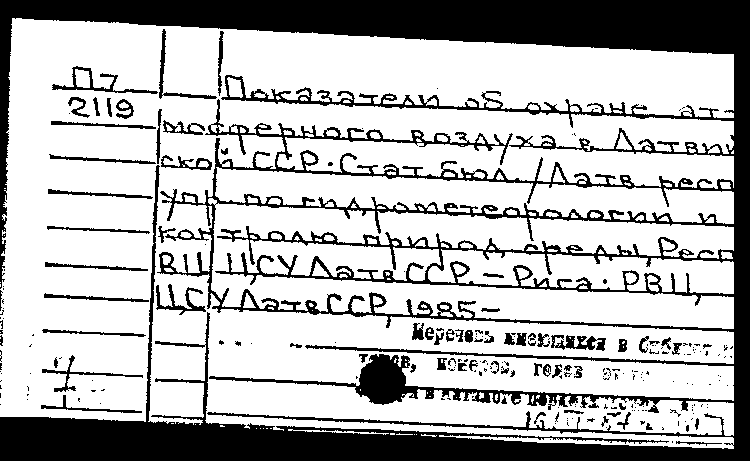 П7
2119
Показатели об охране ат-
мосферного воздуха в Латвий
ской ССР. Стат. бюл. / Латв. респ
упр. по гидрометеорологии и
контролю природ. среды, Респ
ВЦ ЦСУ Латв ССР. – Рига: РВЦ,
ЦСУ Латв ССР, 1985–
Перечень имеющихся в
номеров, годов
в каталоге